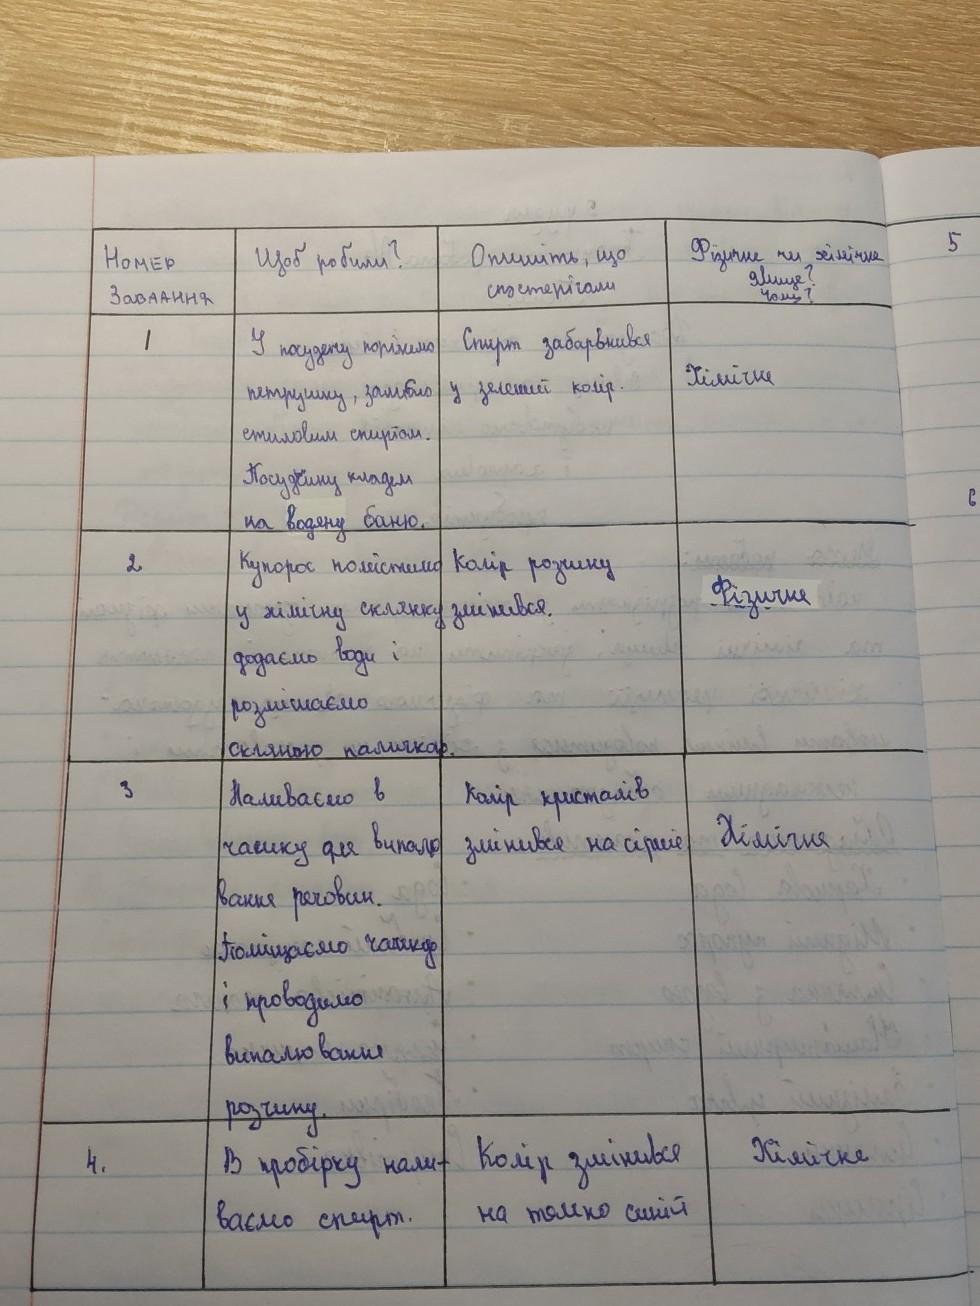 Номер
Завдання
Щоб робили?
Опишіть, що
спостерігали
Фізичне чи хімічне
явище?
Чому?
5
1
У посудену поріжимо
петрушку, залбло
етиловим спиртом.
Посудину кладем
на водяну баню.
Спирт забарвнився
у зелений колір.
Хімічне
6
2
Купорос помістимо
у хімічну склянку
додаємо води і
розмішаємо
скляною паличкою.
Колір розчину
змінився.
Фізичне
3
Наливаємо в
чашку для випалю
вання речовин.
Поміщаємо чашку
і проводимо
випалювання
розчину.
Колір кристалів
змінився на сірий
Хімічне
4.
В пробірку нали-
ваємо спирт.
Колір змінився
на темно синій
Хімічне